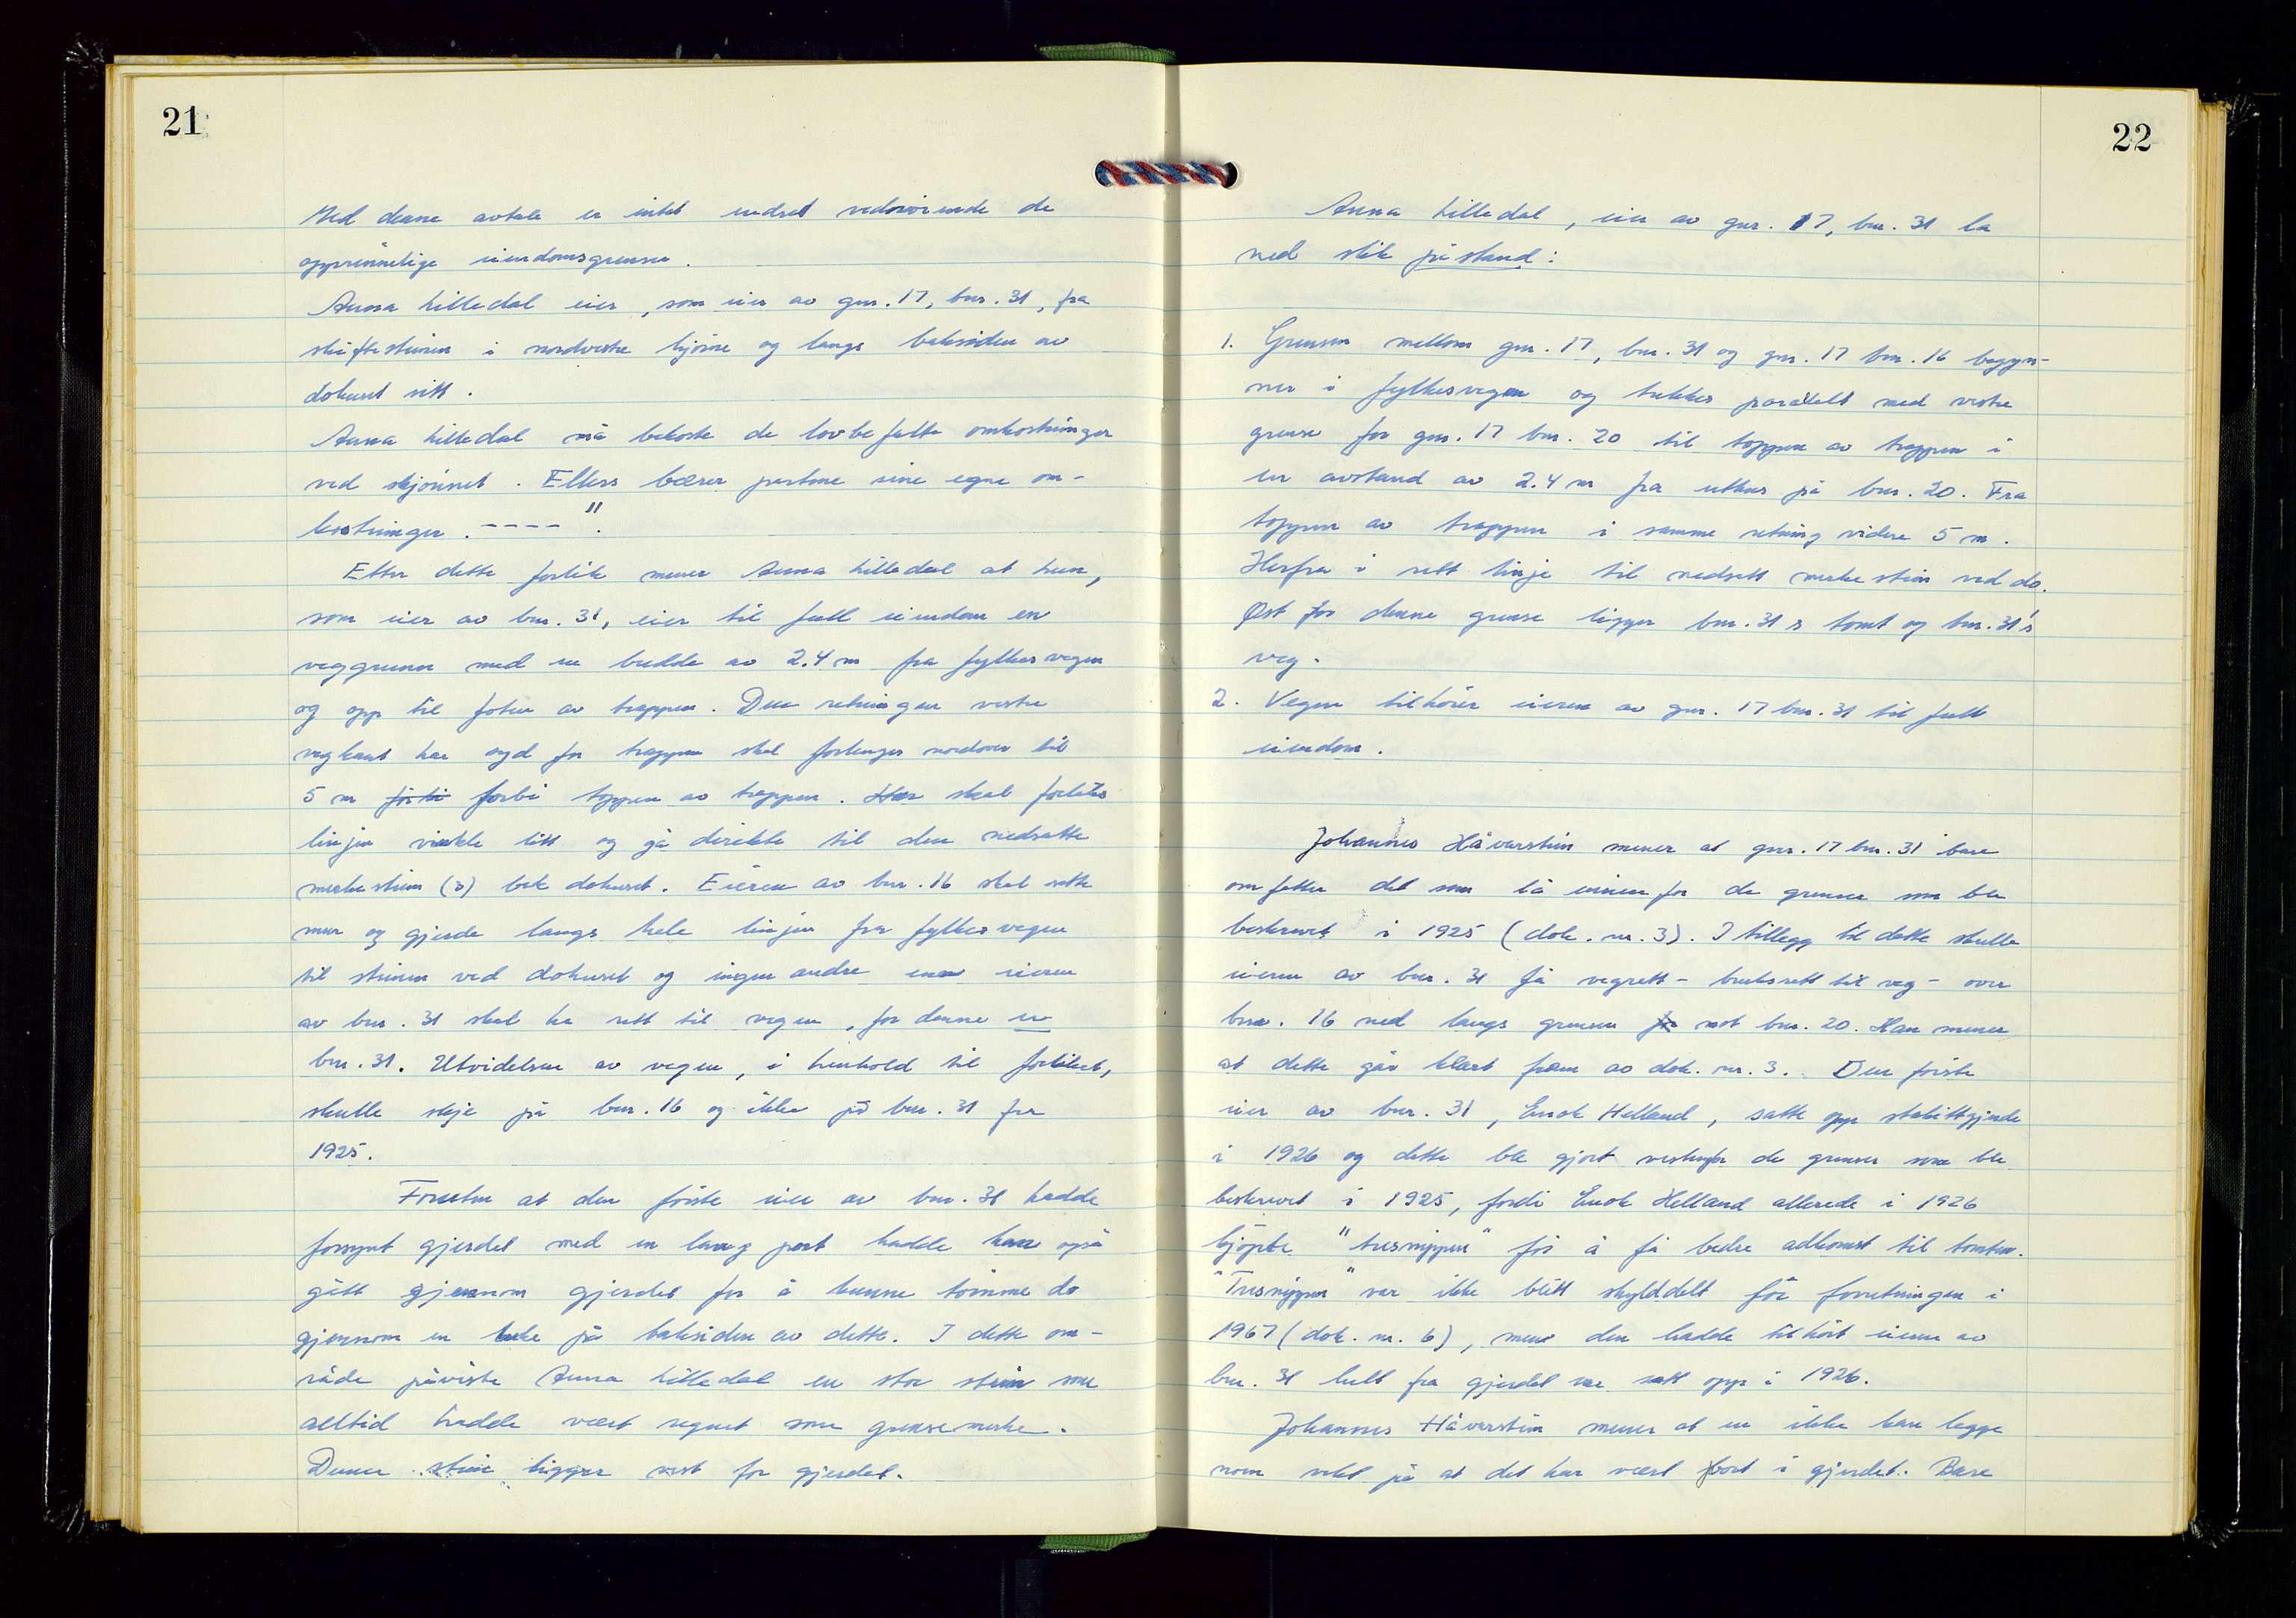 21
Med denne avtale er intet endret vedrörende de
opprinnelige eiendomsgrenser.
Anna Lilledal eier, som eier av gnr. 17, bnr. 31, fra
skiftesteinen i nordvestre hjörne og langs baksiden av
dohuset sitt.
Anna Lilledal må bekoste de lovbefalte omkostninger
ved skjönnet. Ellers bærer partene sine egne om-
kostninger. ---- ".
Etter dette forlik mener Anna Lilledal at hun,
som eier av bnr. 31, eier til full eiendom en
veggrunn med en bredde av 2.4 m fra fylkesvegen
og opp til foten av trappen. Den retningen vestre
vegkant har syd for trappen skal forlenges nordover til
5 m forbi toppen av trappen. Her skal forliks
linjen vinkle litt og gå direkte til den nedsatte
merkestein (o) bak dohuset. Eieren av bnr. 16 skal sette
mur og gjerde langs hele linjen fra fylkesvegen
til steinen ved dohuset og ingen andre enn eieren
av bnr. 31 skal ha rett til vegen, for denne er
bnr. 31. Utvidelsen av vegen, i henhold til forliket,
skulle skje på bnr. 16 og ikke på bnr. 31 fra
1925.
Foruten at den förste eier av bnr. 31 hadde
forsynt gjerdet med en lang port hadde han også
gått gjennom gjerdet for å kunne tömme do
gjennom en luke på baksiden av dette. I dette om-
råde påviste Anna Lilledal en stor stein som
alltid hadde vært regnet som grensemerke.
Denne stein ligger vest for gjerdet.
22
Anna Lilledal, eier av gnr. 17, bnr. 31 la
ned slik påstand:
1. Grensen mellom gnr. 17, bnr. 31 og gnr. 17 bnr. 16 begyn-
ner i fylkesvegen og trekkes paralelt med vestre
grense for gnr. 17 bnr. 20 til toppen av trappen i
en avstand av 2.4 m fra uthus på bnr. 20. Fra
toppen av trappen i samme retning videre 5 m.
Herfra i rett linje til nedsett merkestein ved do.
Öst for denne grense ligger bnr. 31's tomt og bnr. 31's
veg.
2. Vegen tilhörer eieren av gnr. 17 bnr. 31 til full
eiendom.
Johannes Håvarstein mener at gnr. 17 bnr. 31 bare
omfatter det som lå innenfor de grenser som ble
beskrevet i 1925 (dok. nr. 3). I tillegg til dette skulle
eieren av bnr. 31 få vegrett - bruksrett til veg - over
bnr. 16 ned langs grensen mot bnr. 20. Han mener
at dette går klart fram av dok. nr. 3. Den förste
eier av bnr. 31, Enok Helland, satte opp stakittgjerde
i 1926 og dette ble gjort vestenfor de grenser som ble
beskrevet i 1925, fordi Enok Helland allerede i 1926
kjöpte "tresnippen" for å få bedre adkomst til tomten.
"Tresnippen" var ikke blitt skylddelt för forretningen i
1967 (dok. nr. 6), men den hadde tilhört eieren av
bnr. 31 helt fra gjerdet var satt opp i 1926.
Johannes Håvarstein mener at en ikke kan legge
noen vekt på at det har vært port i gjerdet. Bare